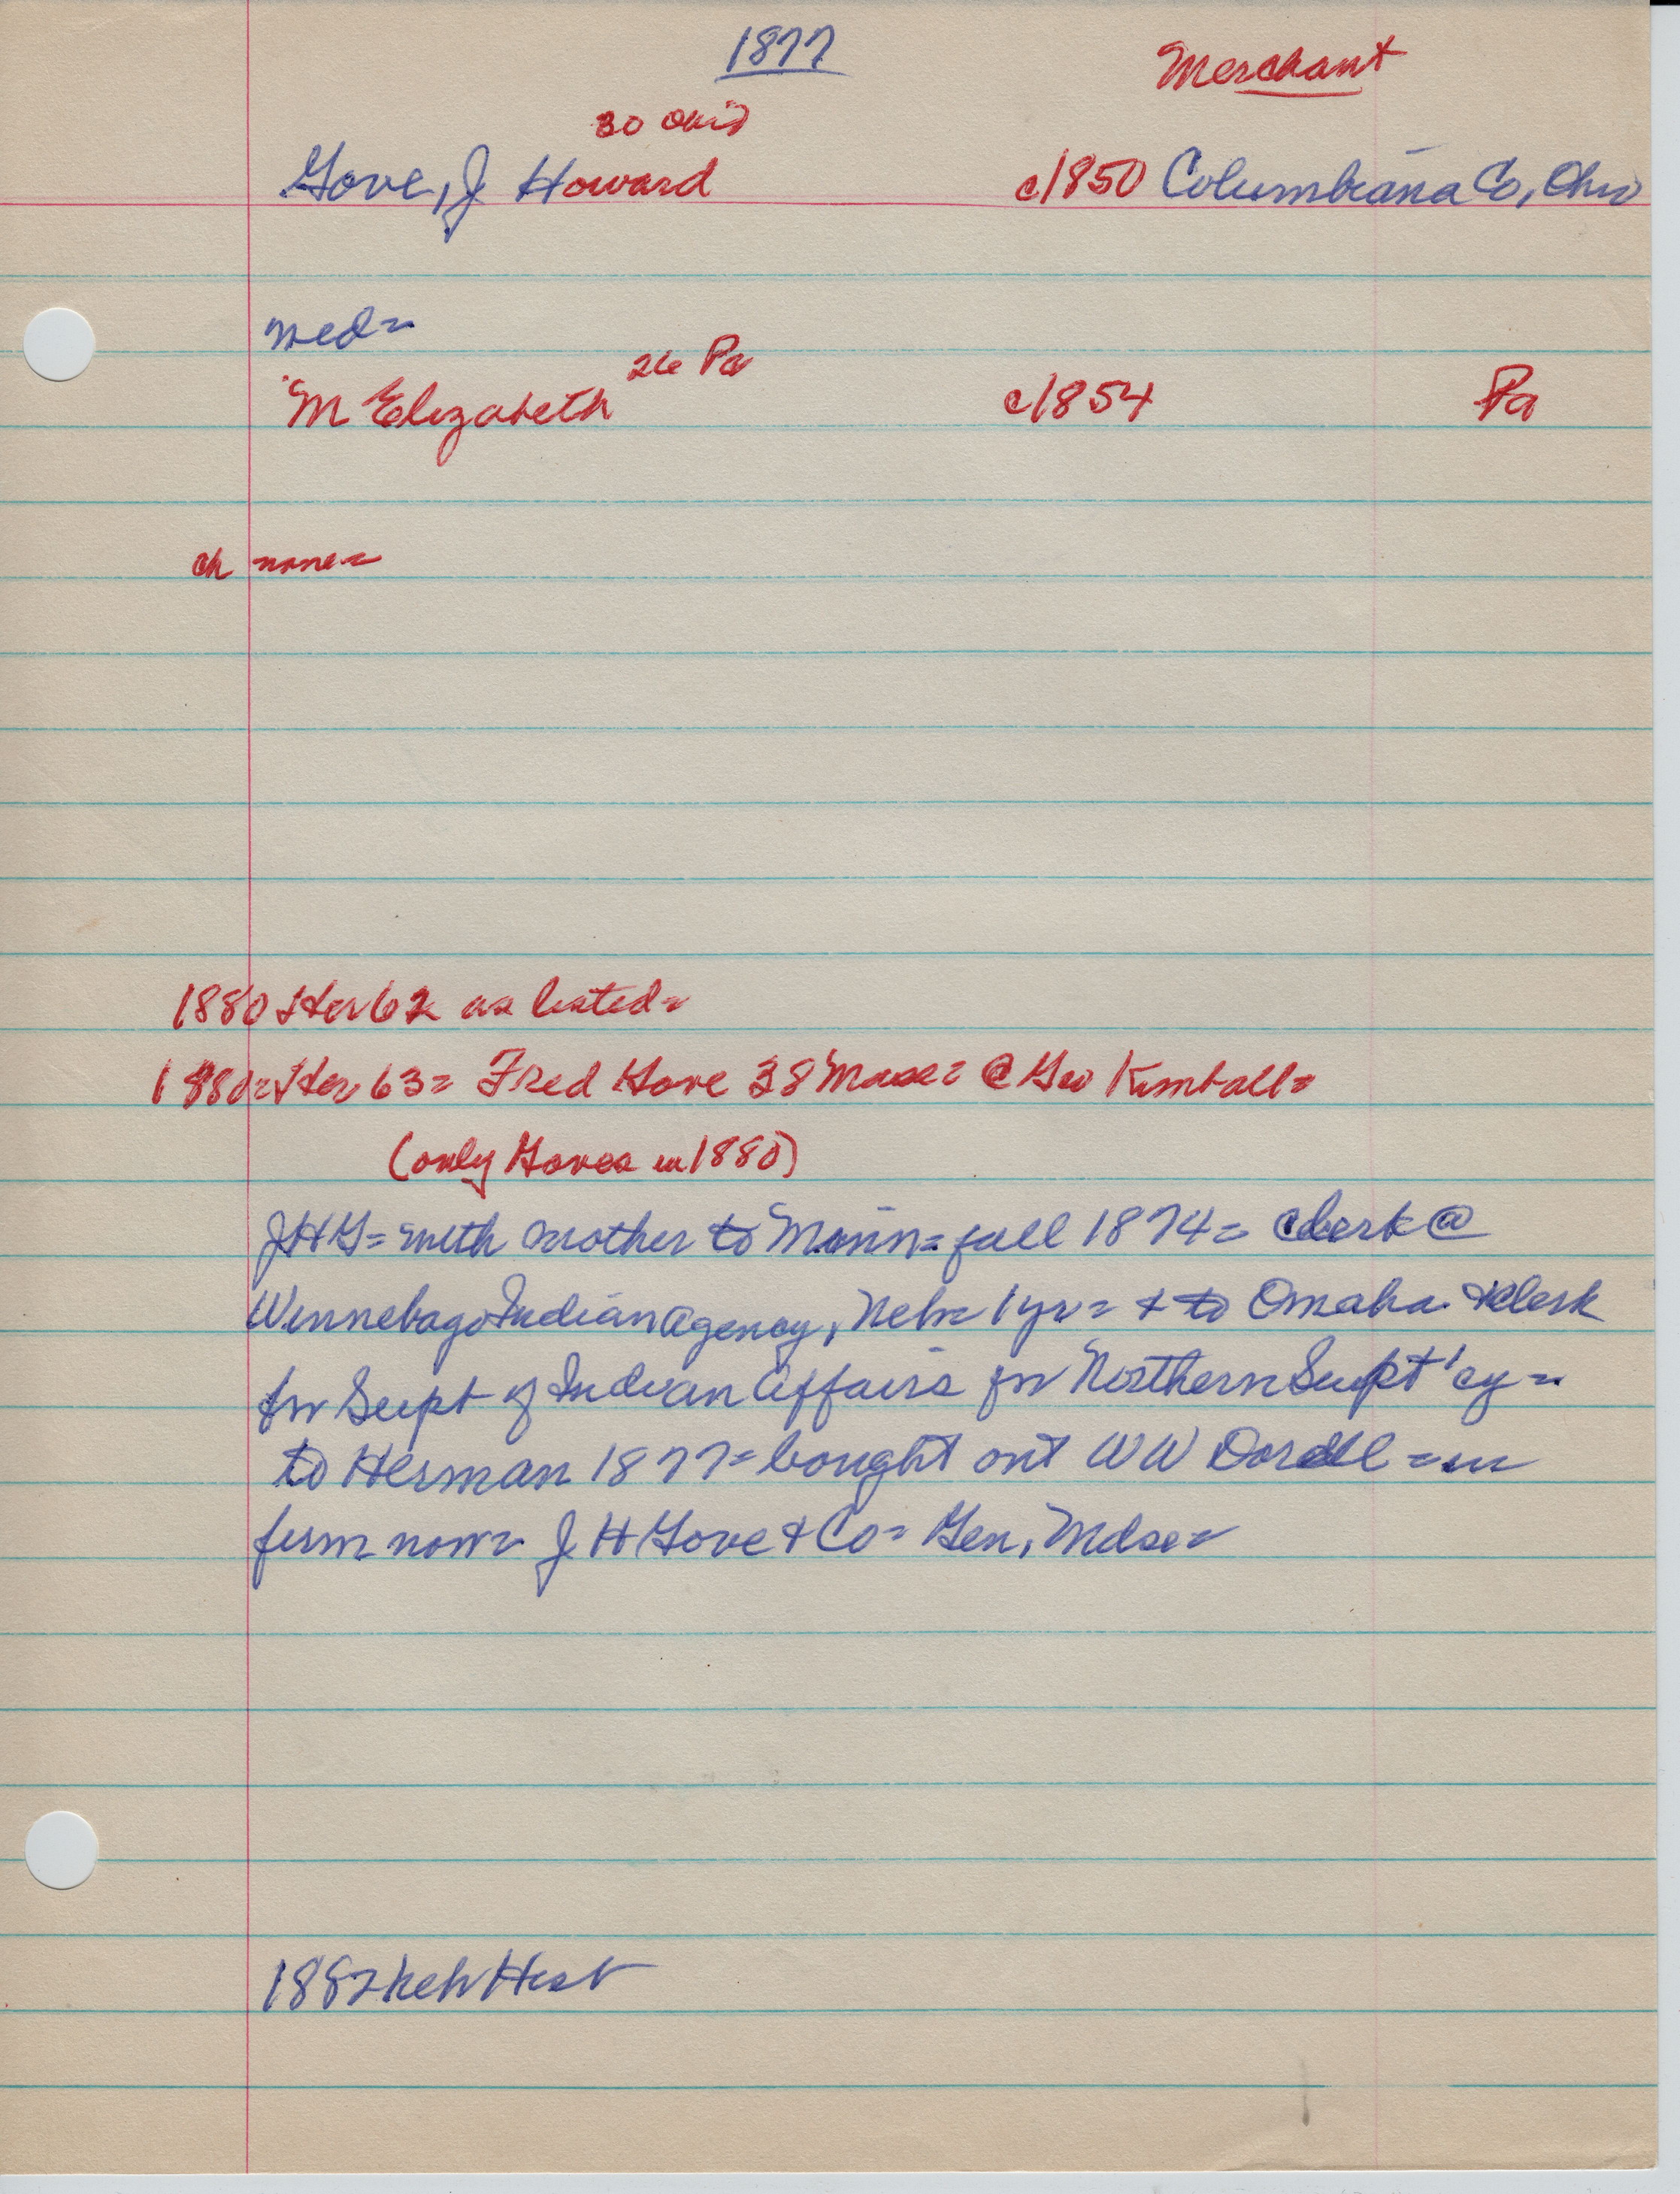 1877
Merchant
30 Ohio
Gove, J Howard c1850 Columbiana Co, Ohio
med=
M Elizabeth 26 Pa c1854 Pa
ch none=
1880 Her 62 as listed=
1880= Her 63= Fred Gove 38 Mass= @ Geo Kimball=
(only Goves in 1880)
JHG= with mother to Minn= fall 1874= clerk @
Winnebago Indian Agency, Neb= 1 yr= + to Omaha + clerk
for Supt of Indian Affairs for Northern Supt'cy=
to Herman 1877= bought out WW Dordll = in
firm now= J H Gove + Co= Gen. Mdse=
1882 Hist